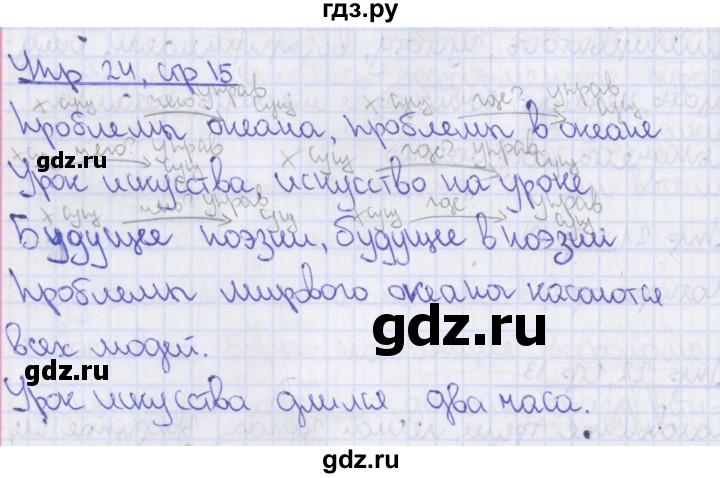 гдз.ру
Упр 24, стр 15
х сущ чего? управ сущ х сущ где? управ сущ
Проблемы океана, проблемы в океане
х сущ чего? управ сущ х сущ где? управ сущ
Урок искусства, искусство на уроке
х сущ чего? управ сущ х сущ где? управ сущ
Будущее поэзии, будущее в поэзии
Проблемы мирового океана касаются
всех людей.
Урок искусства длился два часа.
gdz.ru
gdz.ru
gdz.ru
gdz.ru
gdz.ru
гдз.ру